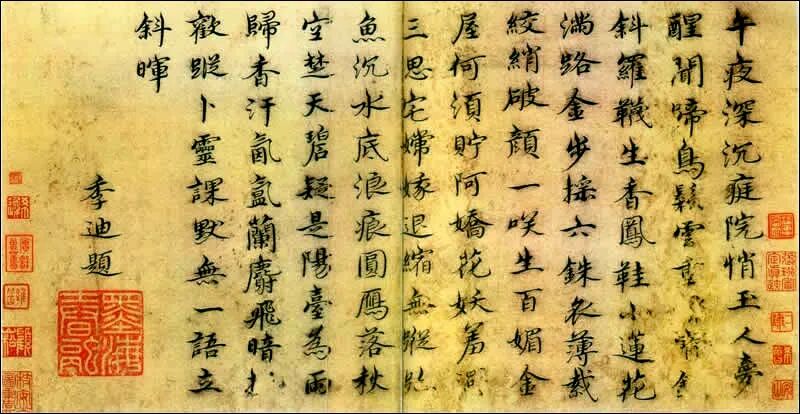 午夜深沉庭院悄玉人夢
醒聞啼鳥鬆雲重
斜羅韈生香鳳鞋小蓮花
滿路金步採六銖衣薄裁
絞綃破顏一咲生百媚金
屋何須貯阿嬌花妖羞
三思宅嫦娥退縮無蹤跡
魚沉水底浪痕圓鴈落秋
空楚天碧疑是陽臺為雨
歸香汗氤氳蘭麝飛暗
歡蹤卜靈課默無一語立
斜暉
季迪題